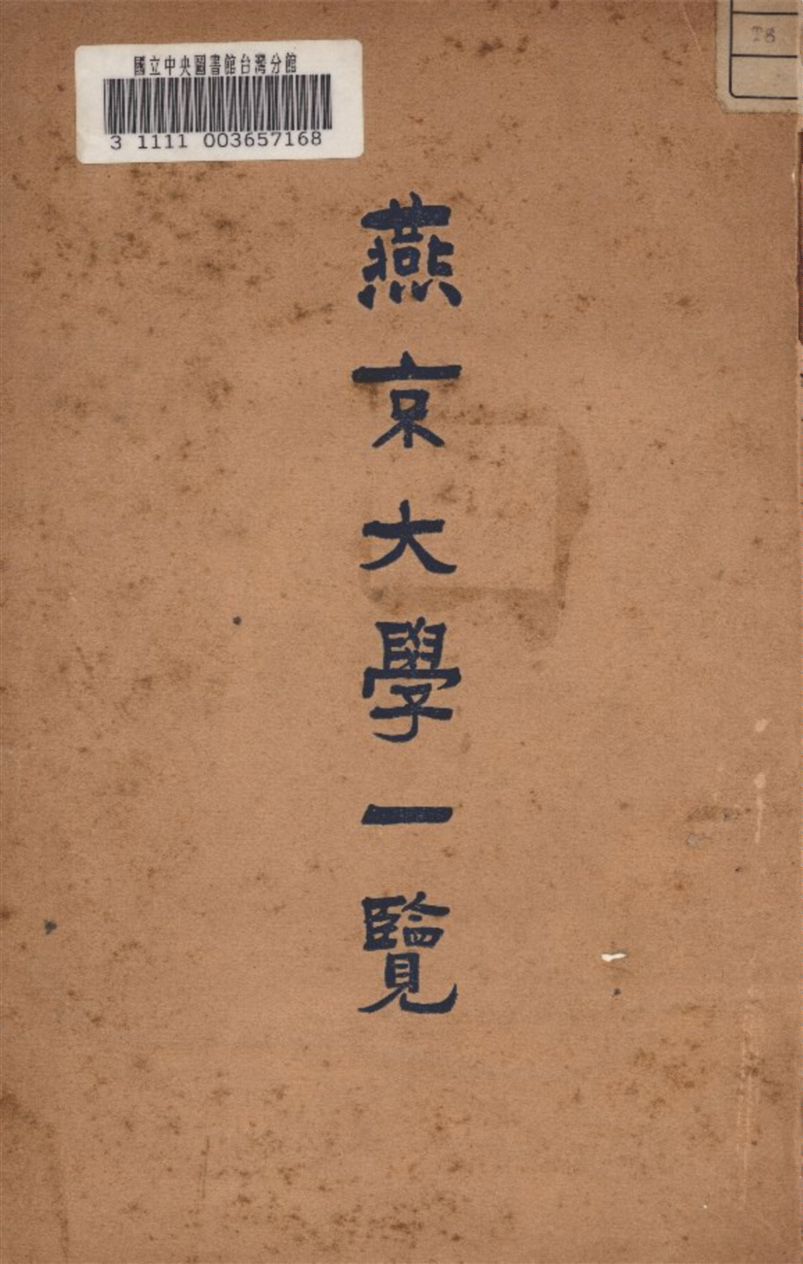 國立中央圖書館台灣分館
3 1111 003657168
T8
燕京大學一覽